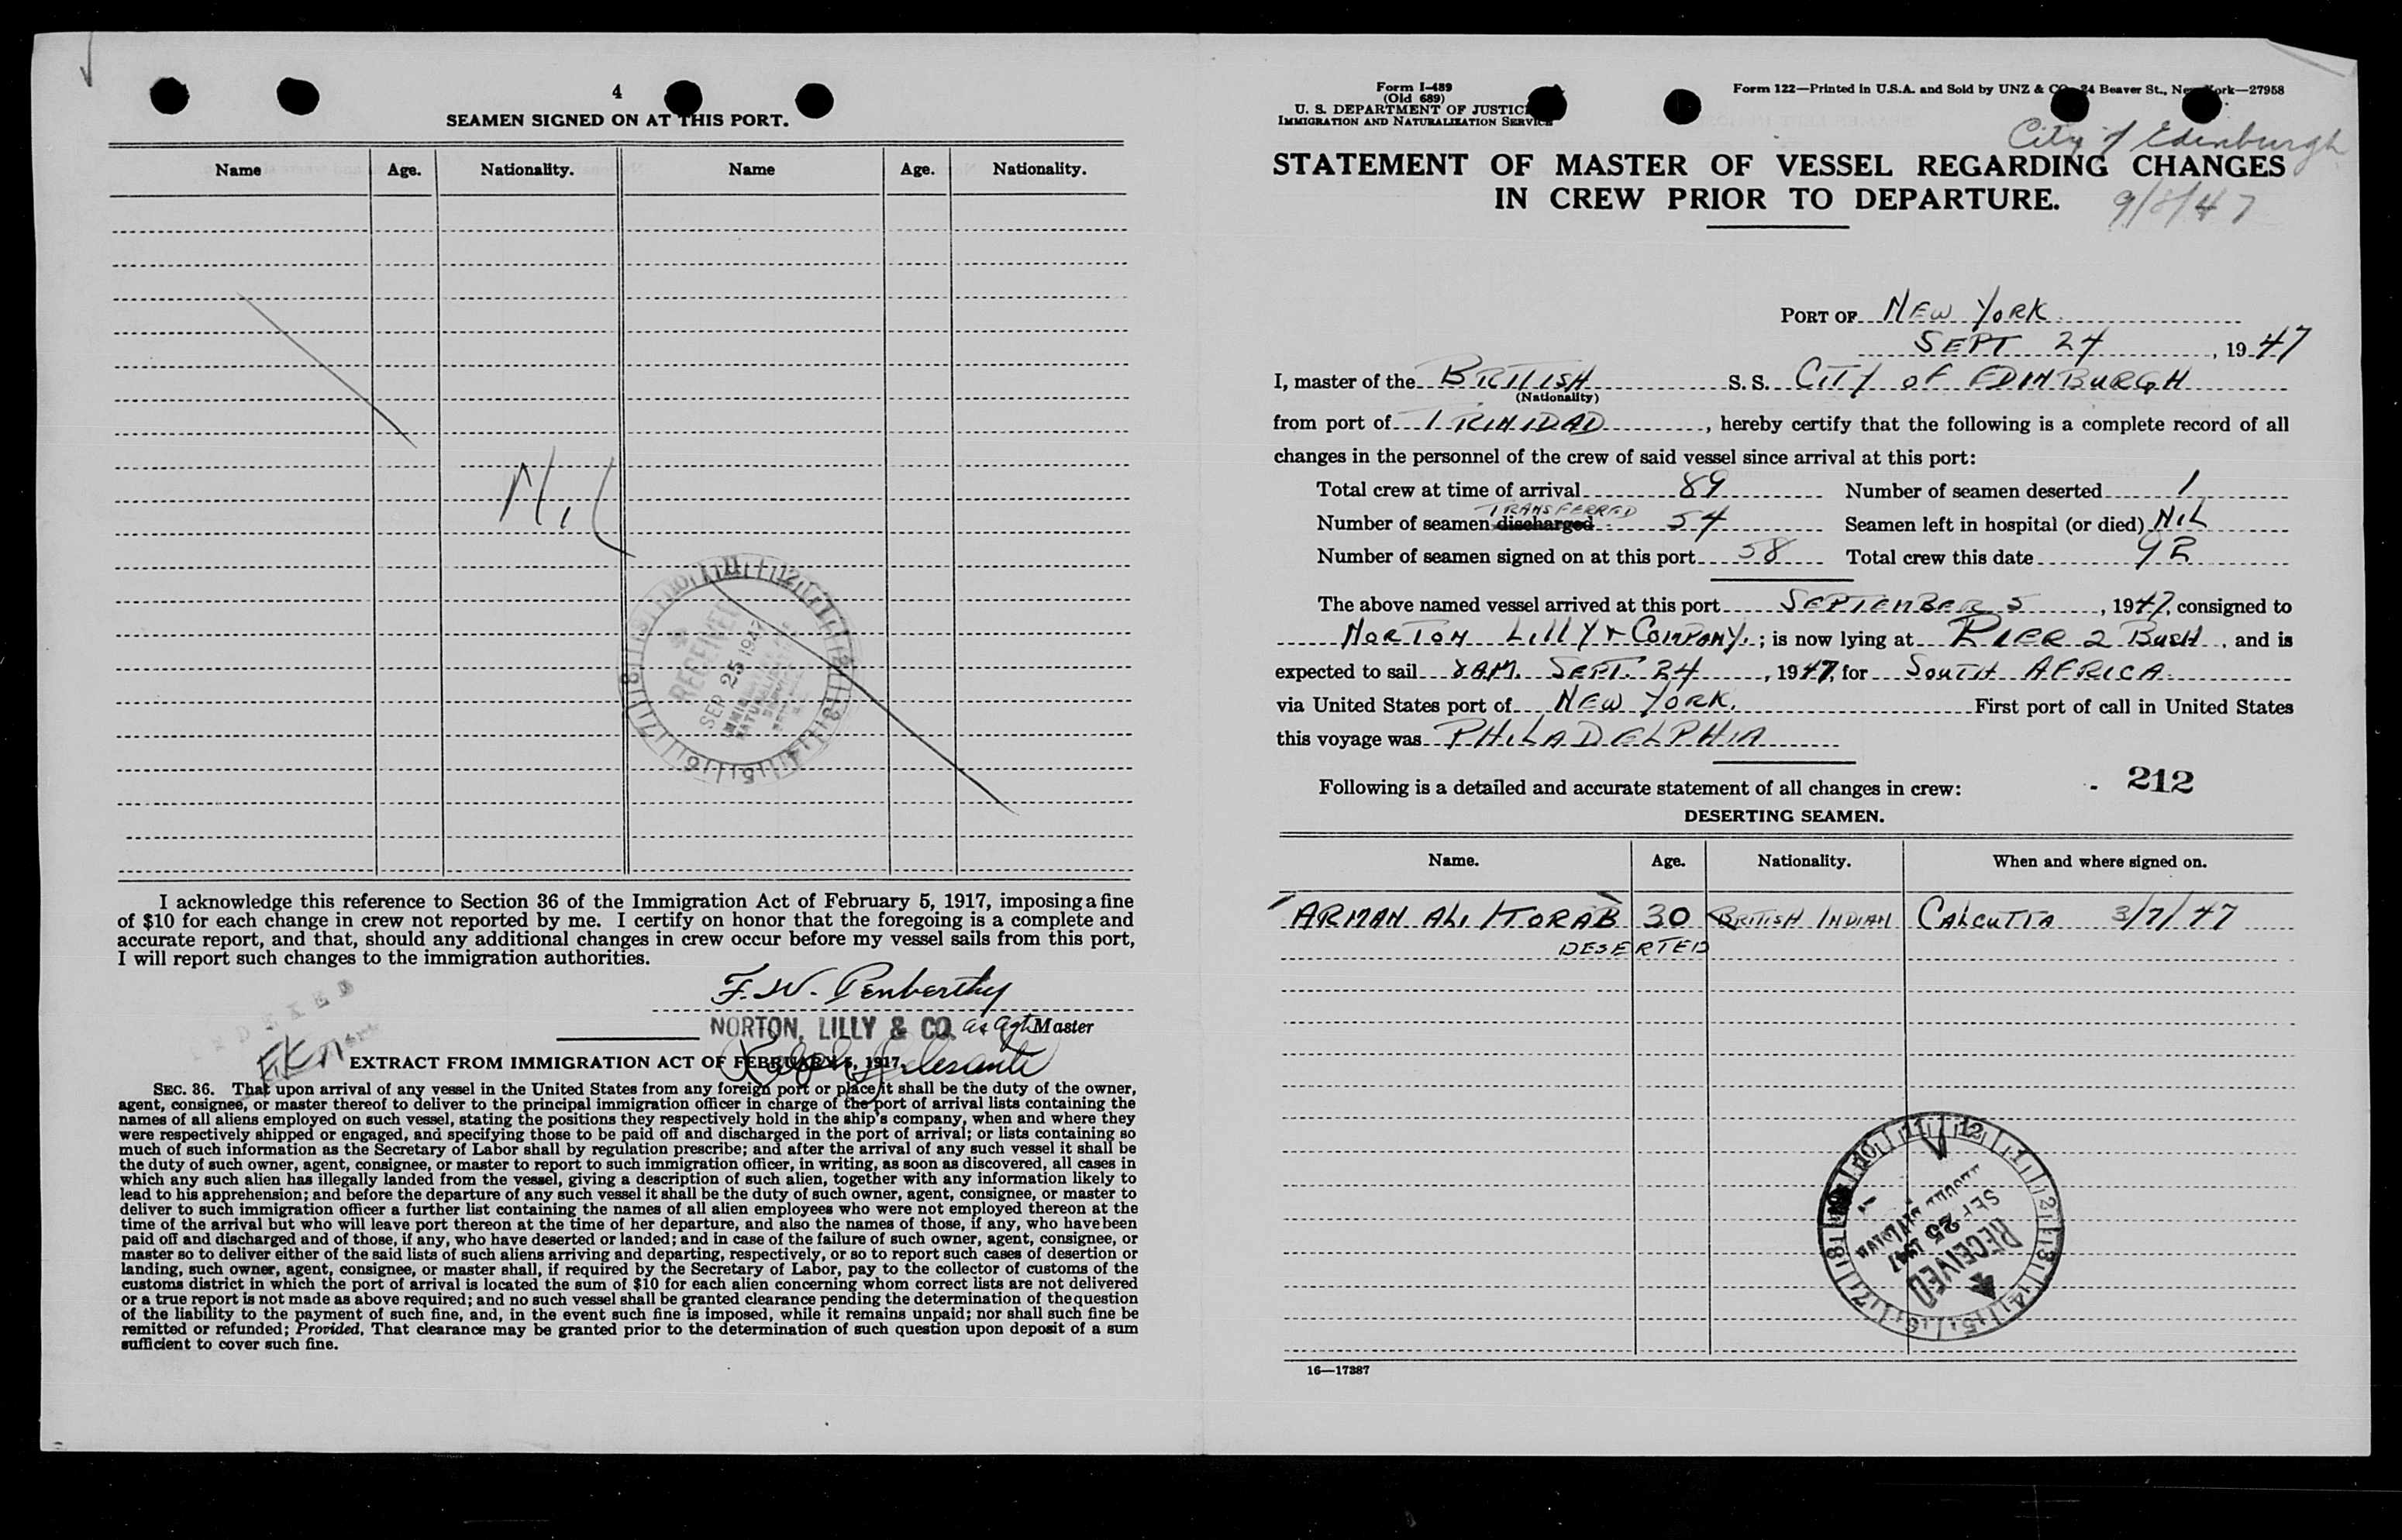 4
SEAMEN SIGNED ON AT THIS PORT.
Name Age. Nationality. Name Age. Nationality.
Nil
RECEIVED
SEP 25 1947
I acknowledge this reference to Section 36 of the Immigration Act of February 5, 1917, imposing a fine
of $10 for each change in crew not reported by me. I certify on honor that the foregoing is a complete and
accurate report, and that, should any additional changes in crew occur before my vessel sails from this port,
I will report such changes to the immigration authorities.
F. W. Penberthy
NORTON, LILLY & CO. as Agt Master
INDEXED
EXTRACT FROM IMMIGRATION ACT OF FEBRUARY 5, 1917.
SEC. 36. That upon arrival of any vessel in the United States from any foreign port or place it shall be the duty of the owner,
agent, consignee, or master thereof to deliver to the principal immigration officer in charge of the port of arrival lists containing the
names of all aliens employed on such vessel, stating the positions they respectively hold in the ship's company, when and where they
were respectively shipped or engaged, and specifying those to be paid off and discharged in the port of arrival; or lists containing so
much of such information as the Secretary of Labor shall by regulation prescribe; and after the arrival of any such vessel it shall be
the duty of such owner, agent, consignee, or master to report to such immigration officer, in writing, as soon as discovered, all cases in
which any such alien has illegally landed from the vessel, giving a description of such alien, together with any information likely to
lead to his apprehension; and before the departure of any such vessel it shall be the duty of such owner, agent, consignee, or master to
deliver to such immigration officer a further list containing the names of all alien employees who were not employed thereon at the
time of the arrival but who will leave port thereon at the time of her departure, and also the names of those, if any, who have been
paid off and discharged and of those, if any, who have deserted or landed; and in case of the failure of such owner, agent, consignee, or
master so to deliver either of the said lists of such aliens arriving and departing, respectively, or so to report such cases of desertion or
landing, such owner, agent, consignee, or master shall, if required by the Secretary of Labor, pay to the collector of customs of the
customs district in which the port of arrival is located the sum of $10 for each alien concerning whom correct lists are not delivered
or a true report is not made as above required; and no such vessel shall be granted clearance pending the determination of the question
of the liability to the payment of such fine, and, in the event such fine is imposed, while it remains unpaid; nor shall such fine be
remitted or refunded; Provided, That clearance may be granted prior to the determination of such question upon deposit of a sum
sufficient to cover such fine.
Form I-489
(Old 689)
U. S. DEPARTMENT OF JUSTICE
IMMIGRATION AND NATURALIZATION SERVICE
Form 122—Printed in U.S.A. and Sold by UNZ & CO., 24 Beaver St., New York—27958
City of Edinburgh
STATEMENT OF MASTER OF VESSEL REGARDING CHANGES
IN CREW PRIOR TO DEPARTURE.
9/8/47
PORT OF NEW YORK
SEPT 24, 1947
I, master of the BRITISH S. S. CITY OF EDINBURGH
(Nationality)
from port of TRINIDAD, hereby certify that the following is a complete record of all
changes in the personnel of the crew of said vessel since arrival at this port:
Total crew at time of arrival 89 Number of seamen deserted 1
TRANSFERRED
Number of seamen discharged 54 Seamen left in hospital (or died) NIL
Number of seamen signed on at this port 58 Total crew this date 92
The above named vessel arrived at this port SEPTEMBER 5, 1947, consigned to
NORTON LILLY & COMPANY.; is now lying at PIER 2 BUSH, and is
expected to sail 8AM. SEPT. 24, 1947, for SOUTH AFRICA
via United States port of NEW YORK. First port of call in United States
this voyage was PHILADELPHIA
Following is a detailed and accurate statement of all changes in crew: 212
DESERTING SEAMEN.
Name. Age. Nationality. When and where signed on.
ARMAN ALI / TORAB 30 BRITISH INDIAN CALCUTTA 3/7/47
DESERTED
RECEIVED
SEP 25 1947
16—17387